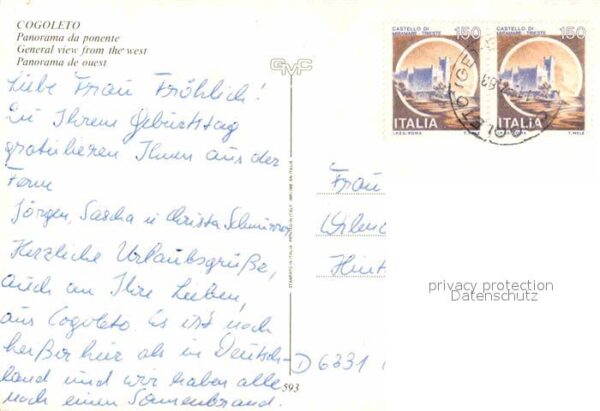 COGOLETO
Panorama da ponente
General view from the west
Panorama de ouest
GMC
Liebe Frau Fröhlich!
Zu Ihrem Geburtstag
gratulieren Ihnen aus der
Ferne
Jörgen, Sascha u Christa
Herzliche Urlaubsgrüße,
auch an Ihre Lieben,
aus Cogoleto. Es ist noch
heißer hier als in Deutsch-
land und wir haben alle
noch einen Sonnenbrand.
593
CASTELLO DI
MIRAMARE TRIESTE
150
ITALIA
I.P.Z.S. ROMA
T. MELE
CASTELLO DI
MIRAMARE TRIESTE
150
ITALIA
T. MELE
Frau
Hint
D 6331
privacy protection
Datenschutz